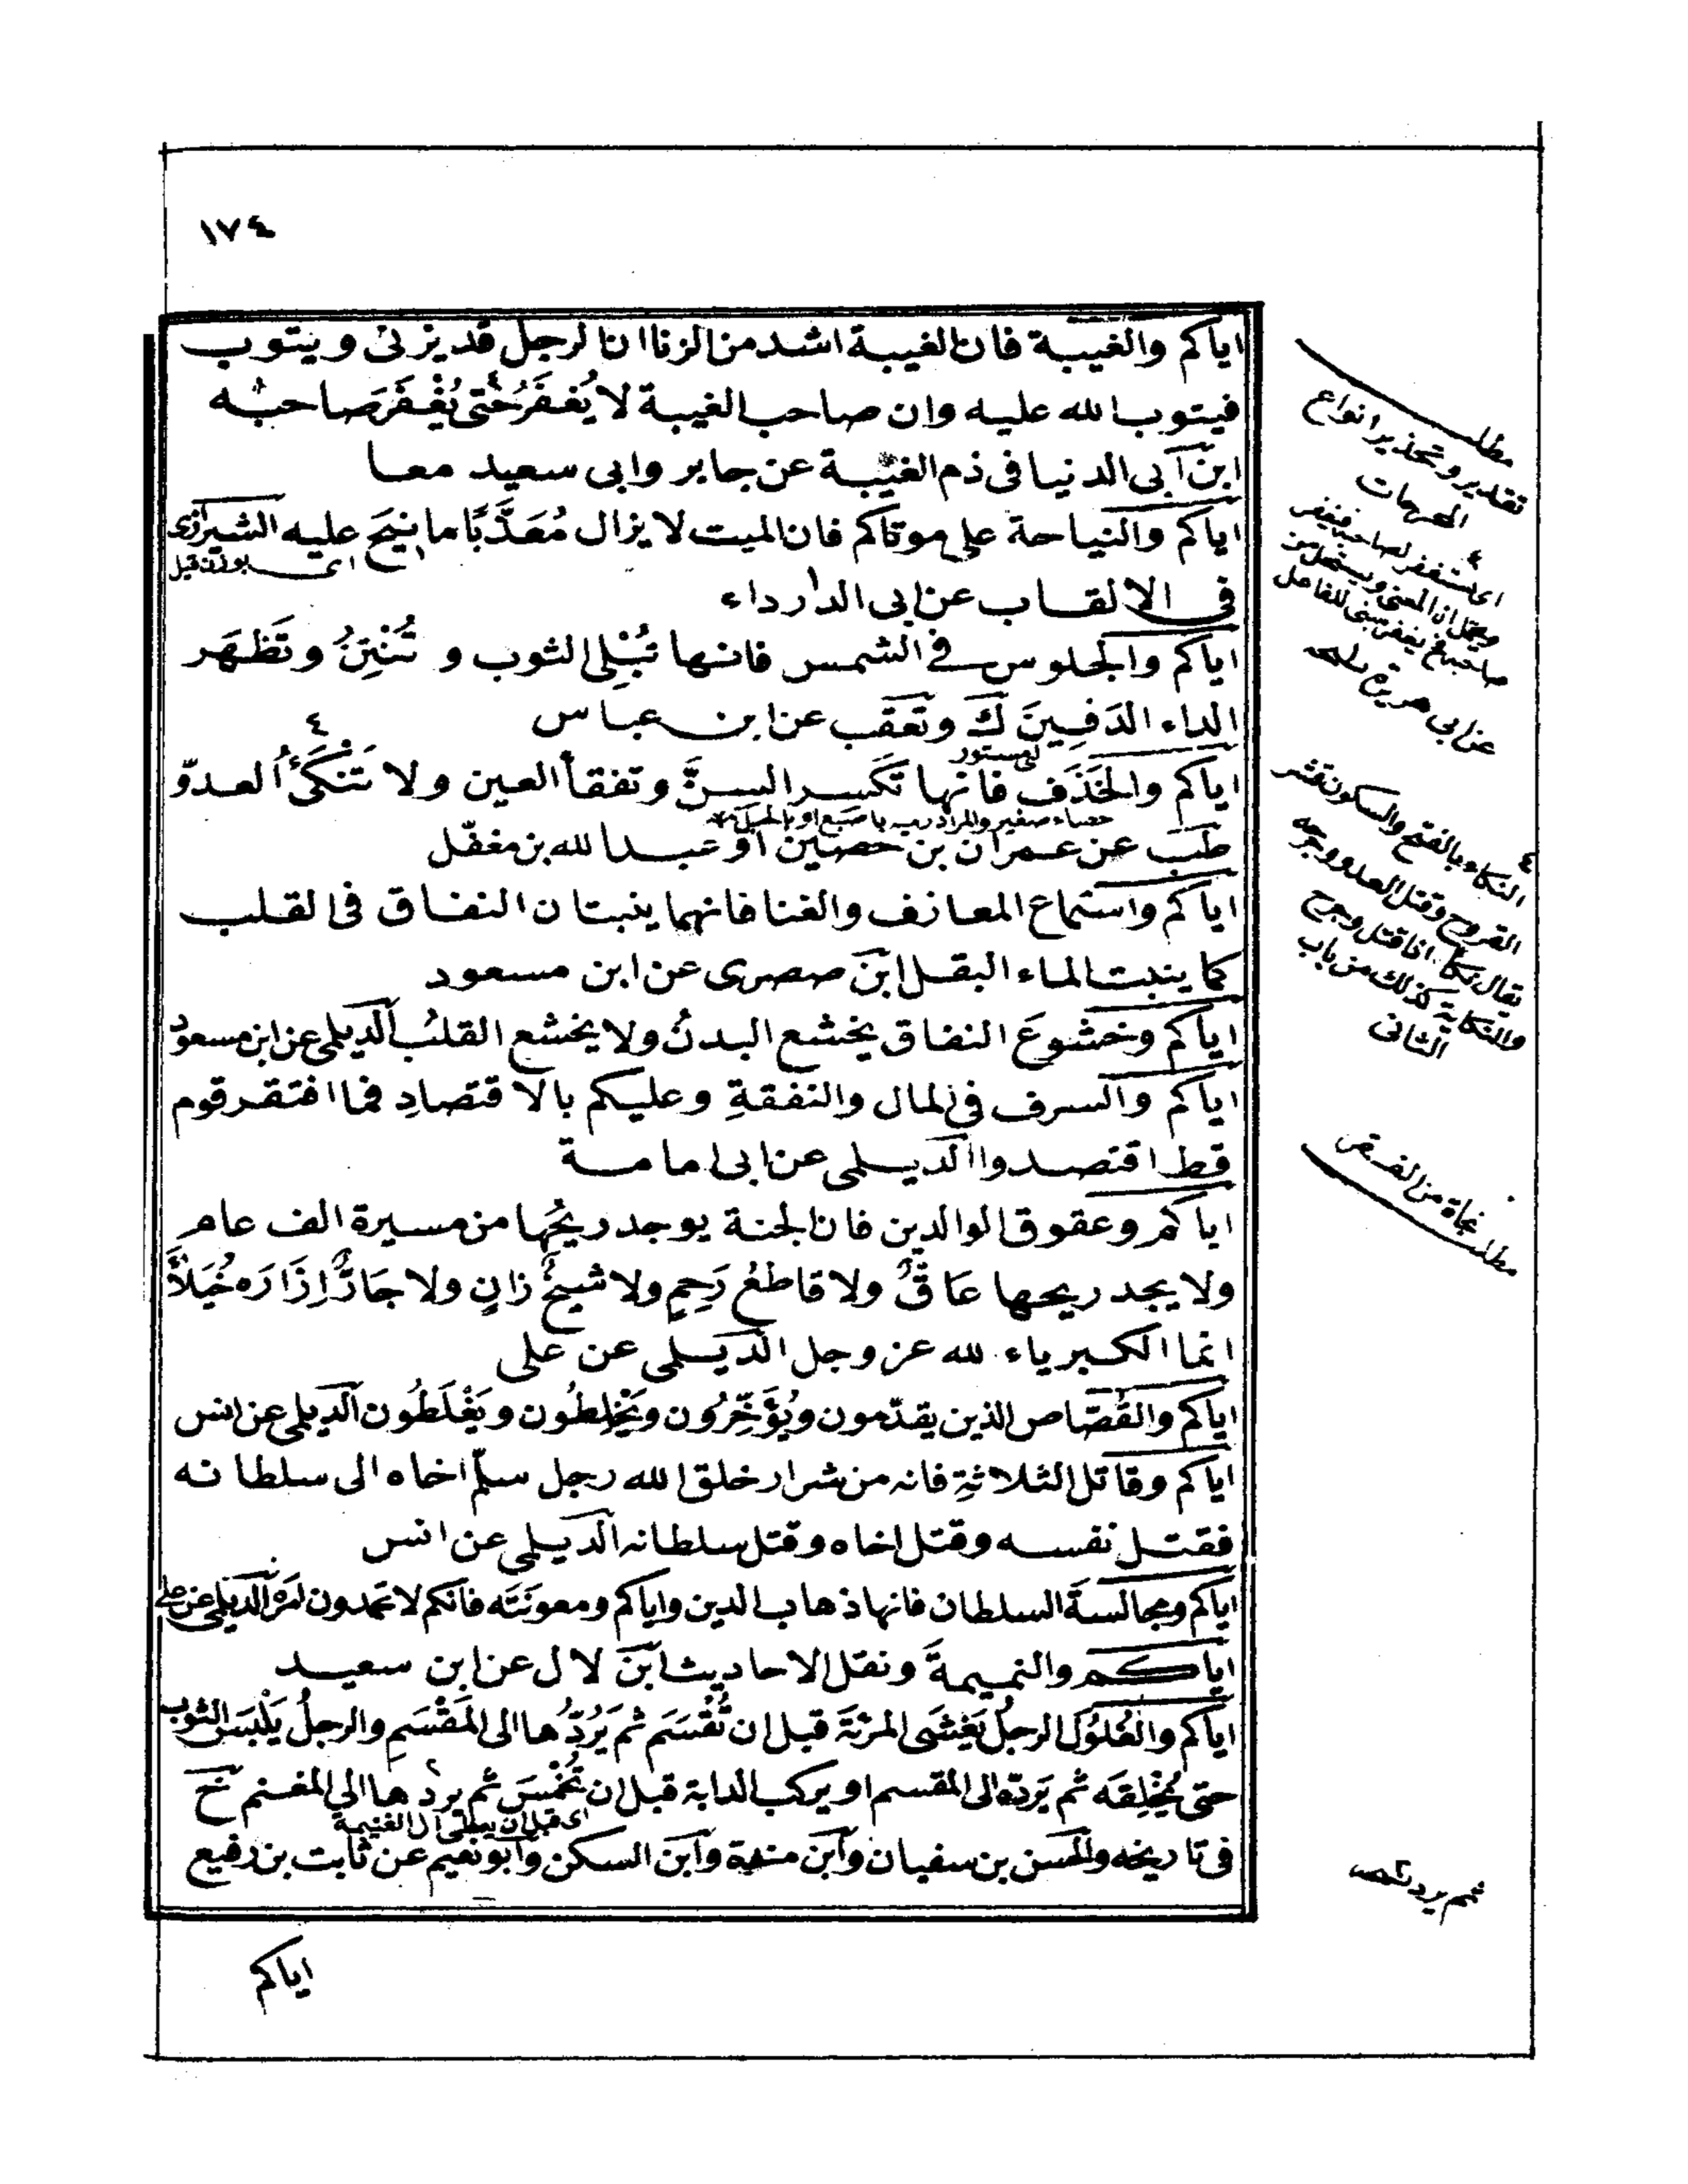 ١٧٤
اياكم والغيبة فان الغيبة اشد من الزنا ان الرجل قد يزنى ويتوب
فيتوب الله عليه وان صاحب الغيبة لا يُغفَرُ حتى يُغْفَرَ صاحبه
ابن ابى الدنيا فى ذم الغيبة عن جابر وابى سعيد معا
اياكم والنياحة على موتاكم فان الميت لا يزال مُعَذَّبًا ما نيحَ عليه الشيرازى
اى بوزن قيل
فى الالقاب عن ابى الدارداء
اياكم والجلوس فى الشمس فانها تُبْلِى الثوب و تُنْتِنُ وتَظهَر
الداء الدَفِينَ ك وتعقب عن ابن عباس
اى مستور
اياكم والخَذَف فانها تكَسر السِنَّ وتفقأ العين ولا تَنْكَئُ العدوّ
حصاء صغير والمراد رميه باصبع او بالمسبل
طب عن عمران بن حصين او عبد الله بن مغفّل
اياكم واستماع المعازف والغنا فانهما ينبتان النفاق فى القلب
كما ينبت الماء البقل ابن صصرى عن ابن مسعود
اياكم وخشوعَ النفاق يخشع البدنُ ولا يخشع القلبُ الديلمى عن ابن مسعود
اياكم والسرف فى المال والنفقةِ وعليكم بالاقتصادِ فما افتقر قوم
قط اقتصدوا الديلمى عن ابى امامة
اياكم وعقوق الوالدين فان الجنة يوجد ريحُها من مسيرة الف عام
ولا يجد ريحها عَاقٌ ولا قاطعُ رَحِمٍ ولا شيخٌ زانٍ ولا جَارٌّ اِزَارَه خُيَلاَءً
انما الكبرياء لله عز وجل الديلمى عن على
اياكم والقُصّاص الذين يقدّمون ويُؤَخِّرُون ويَخْلِطُون ويَغْلَطُون الديلمى عن انس
اياكم وقاتل الثلاثةِ فانه من شرار خلق الله رجل سلّم اخاه الى سلطانه
فقتل نفسه وقتل اخاه وقتل سلطانه الديلمى عن انس
اياكم ومجالسةَ السلطان فانها ذهاب الدين واياكم ومعونَتَه فانكم لا تحمدون امره الديلمى عن على
اياكم والنميمةَ ونقل الاحاديث ابن لال عن ابن سعيد
اياكم والغُلُوْلَ الرجلُ يَغشَى المرئةَ قبل ان تُقْسَم ثم يَرُدُّها الى المَقْسَمِ والرجلُ يَلْبَس الثوب
حتى يُخْلِقَه ثم يَردّه الى المقسم او يركب الدابة قبل ان تُخْمَسَ ثم يردها الى المغنم خ
اى قبل ان يعطى ال الغنيمة
فى تاريخه والحسن بن سفيان وابن مندة وابن السكن وابو نعيم عن ثابت بن رفيع
اياكم
مطلب
تقدير وتحذير انواع
ويحتمل ان المعنى
عن ابى هريرة
٤
النكاء بالفتح والسكون قشر
القروح وقتل العدو وجرحه
يقال نكأ اذا قتل وجرح
والنكاية كذلك من باب
الثانى
مطلب
نجاة من الفقر
ثم يرد